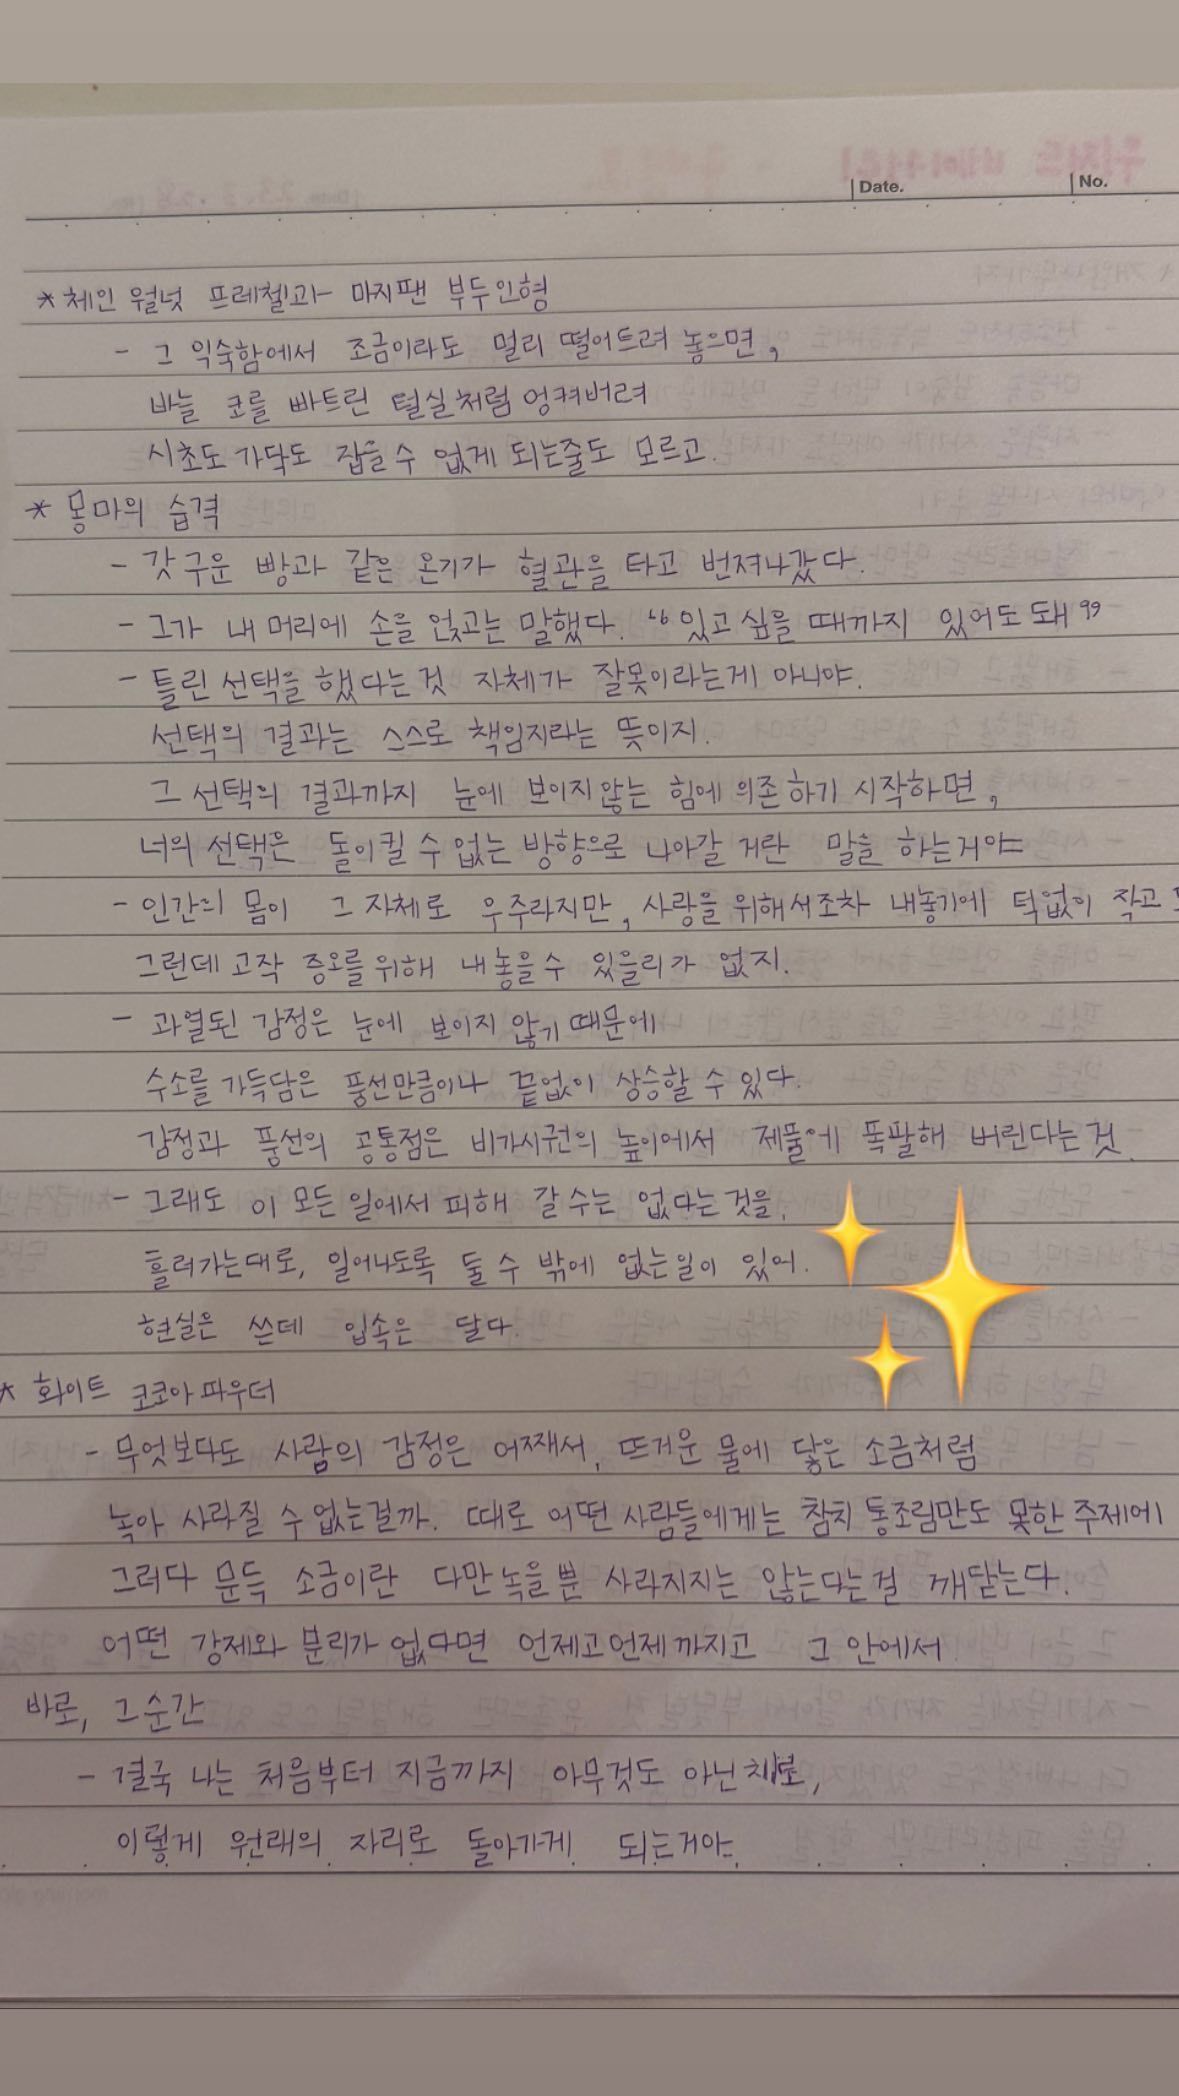 Date. No.
* 체인 월넛 프레첼과 마지팬 부두인형
- 그 익숙함에서 조금이라도 멀리 떨어트려 놓으면,
바늘 코를 빠트린 털실처럼 엉켜버려
시초도 가닥도 잡을수 없게 되는줄도 모르고.
* 몽마의 습격
- 갓 구운 빵과 같은 온기가 혈관을 타고 번져나갔다.
- 그가 내 머리에 손을 얹고는 말했다. “있고 싶을 때까지 있어도 돼”
- 틀린 선택을 했다는것 자체가 잘못이라는게 아니야.
선택의 결과는 스스로 책임지라는 뜻이지.
그 선택의 결과까지 눈에 보이지않는 힘에 의존하기 시작하면,
너의 선택은 돌이킬 수 없는 방향으로 나아갈 거란 말을 하는거야
- 인간의 몸이 그 자체로 우주라지만, 사랑을 위해서조차 내놓기에 턱없이 작고
그런데 고작 증오를 위해 내놓을수 있을리가 없지.
- 과열된 감정은 눈에 보이지 않기 때문에
수소를 가득담은 풍선만큼이나 끝없이 상승할 수 있다.
감정과 풍선의 공통점은 비가시권의 높이에서 제풀에 폭팔해 버린다는것.
- 그래도 이 모든 일에서 피해 갈 수는 없다는 것을.
흘러가는대로, 일어나도록 둘 수 밖에 없는일이 있어.
현실은 쓴데 입속은 달다.
* 화이트 코코아 파우더
- 무엇보다도 사람의 감정은 어째서, 뜨거운 물에 닿은 소금처럼
녹아 사라질 수 없는걸까. 때로 어떤 사람들에게는 참치 통조림만도 못한 주제에
그러다 문득 소금이란 다만 녹을 뿐 사라지지는 않는다는걸 깨닫는다.
어떤 강제와 분리가 없다면 언제고언제까지고 그 안에서
바로, 그 순간
- 결국 나는 처음부터 지금까지 아무것도 아닌채로,
이렇게 원래의 자리로 돌아가게 되는거야.